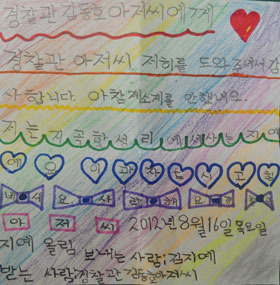 경찰관 김동호 아저씨에게
경찰관 아저씨 저희를 도와주셔서 감
사합니다. 아참 제소개를 안했네요.
저는 지곡학성리에 사는 지
예
아 저 씨 2012년 8월 16일 목요일
지예 올림 보내는 사람;김지예
받는 사람;경찰관 김동호아저씨